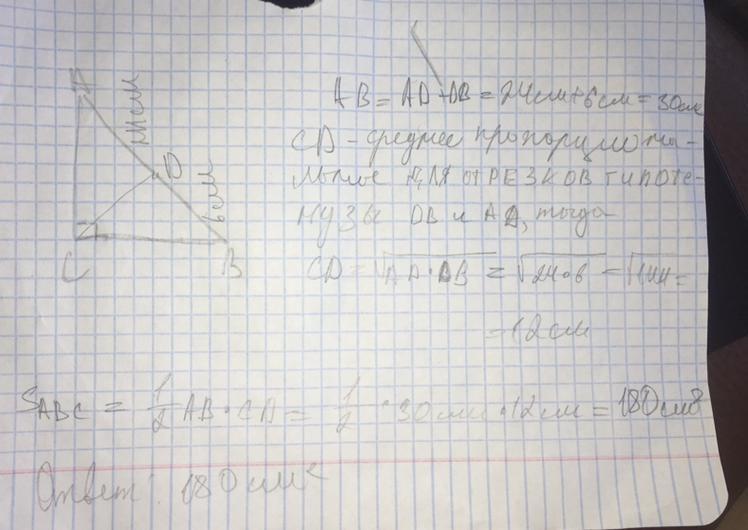 A
24см
D
6см
C
B
AB = AD + DB = 24см + 6см = 30см
CD - среднее пропорциона-
льное для отрезков гипоте-
нузы DB и AD, тогда
CD = √AD·DB = √24·6 = √144 =
= 12см
S ABC = 1/2 AB·CD = 1/2 · 30см · 12см = 180см²
Ответ: 180см²